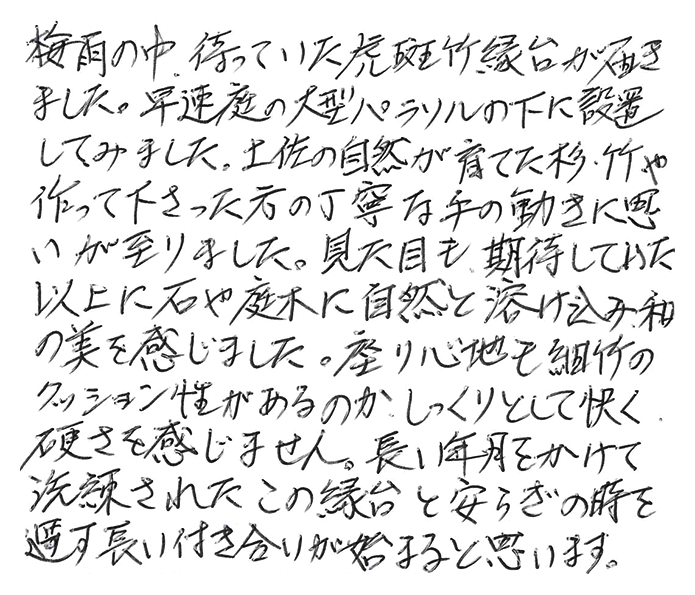 梅雨の中、待っていた虎斑竹縁台が届き
ました。早速庭の大型パラソルの下に設置
してみました。土佐の自然が育てた杉・竹や
作って下さった方の丁寧な手の動きに思
いが至りました。見た目も、期待していた
以上に石や庭木に自然と溶け込み、和
の美を感じました。座り心地も細竹の
クッション性があるのか、しっくりとして快く、
硬さを感じません。長い年月をかけて
洗練されたこの縁台と安らぎの時を
過す長い付き合いが始まると思います。